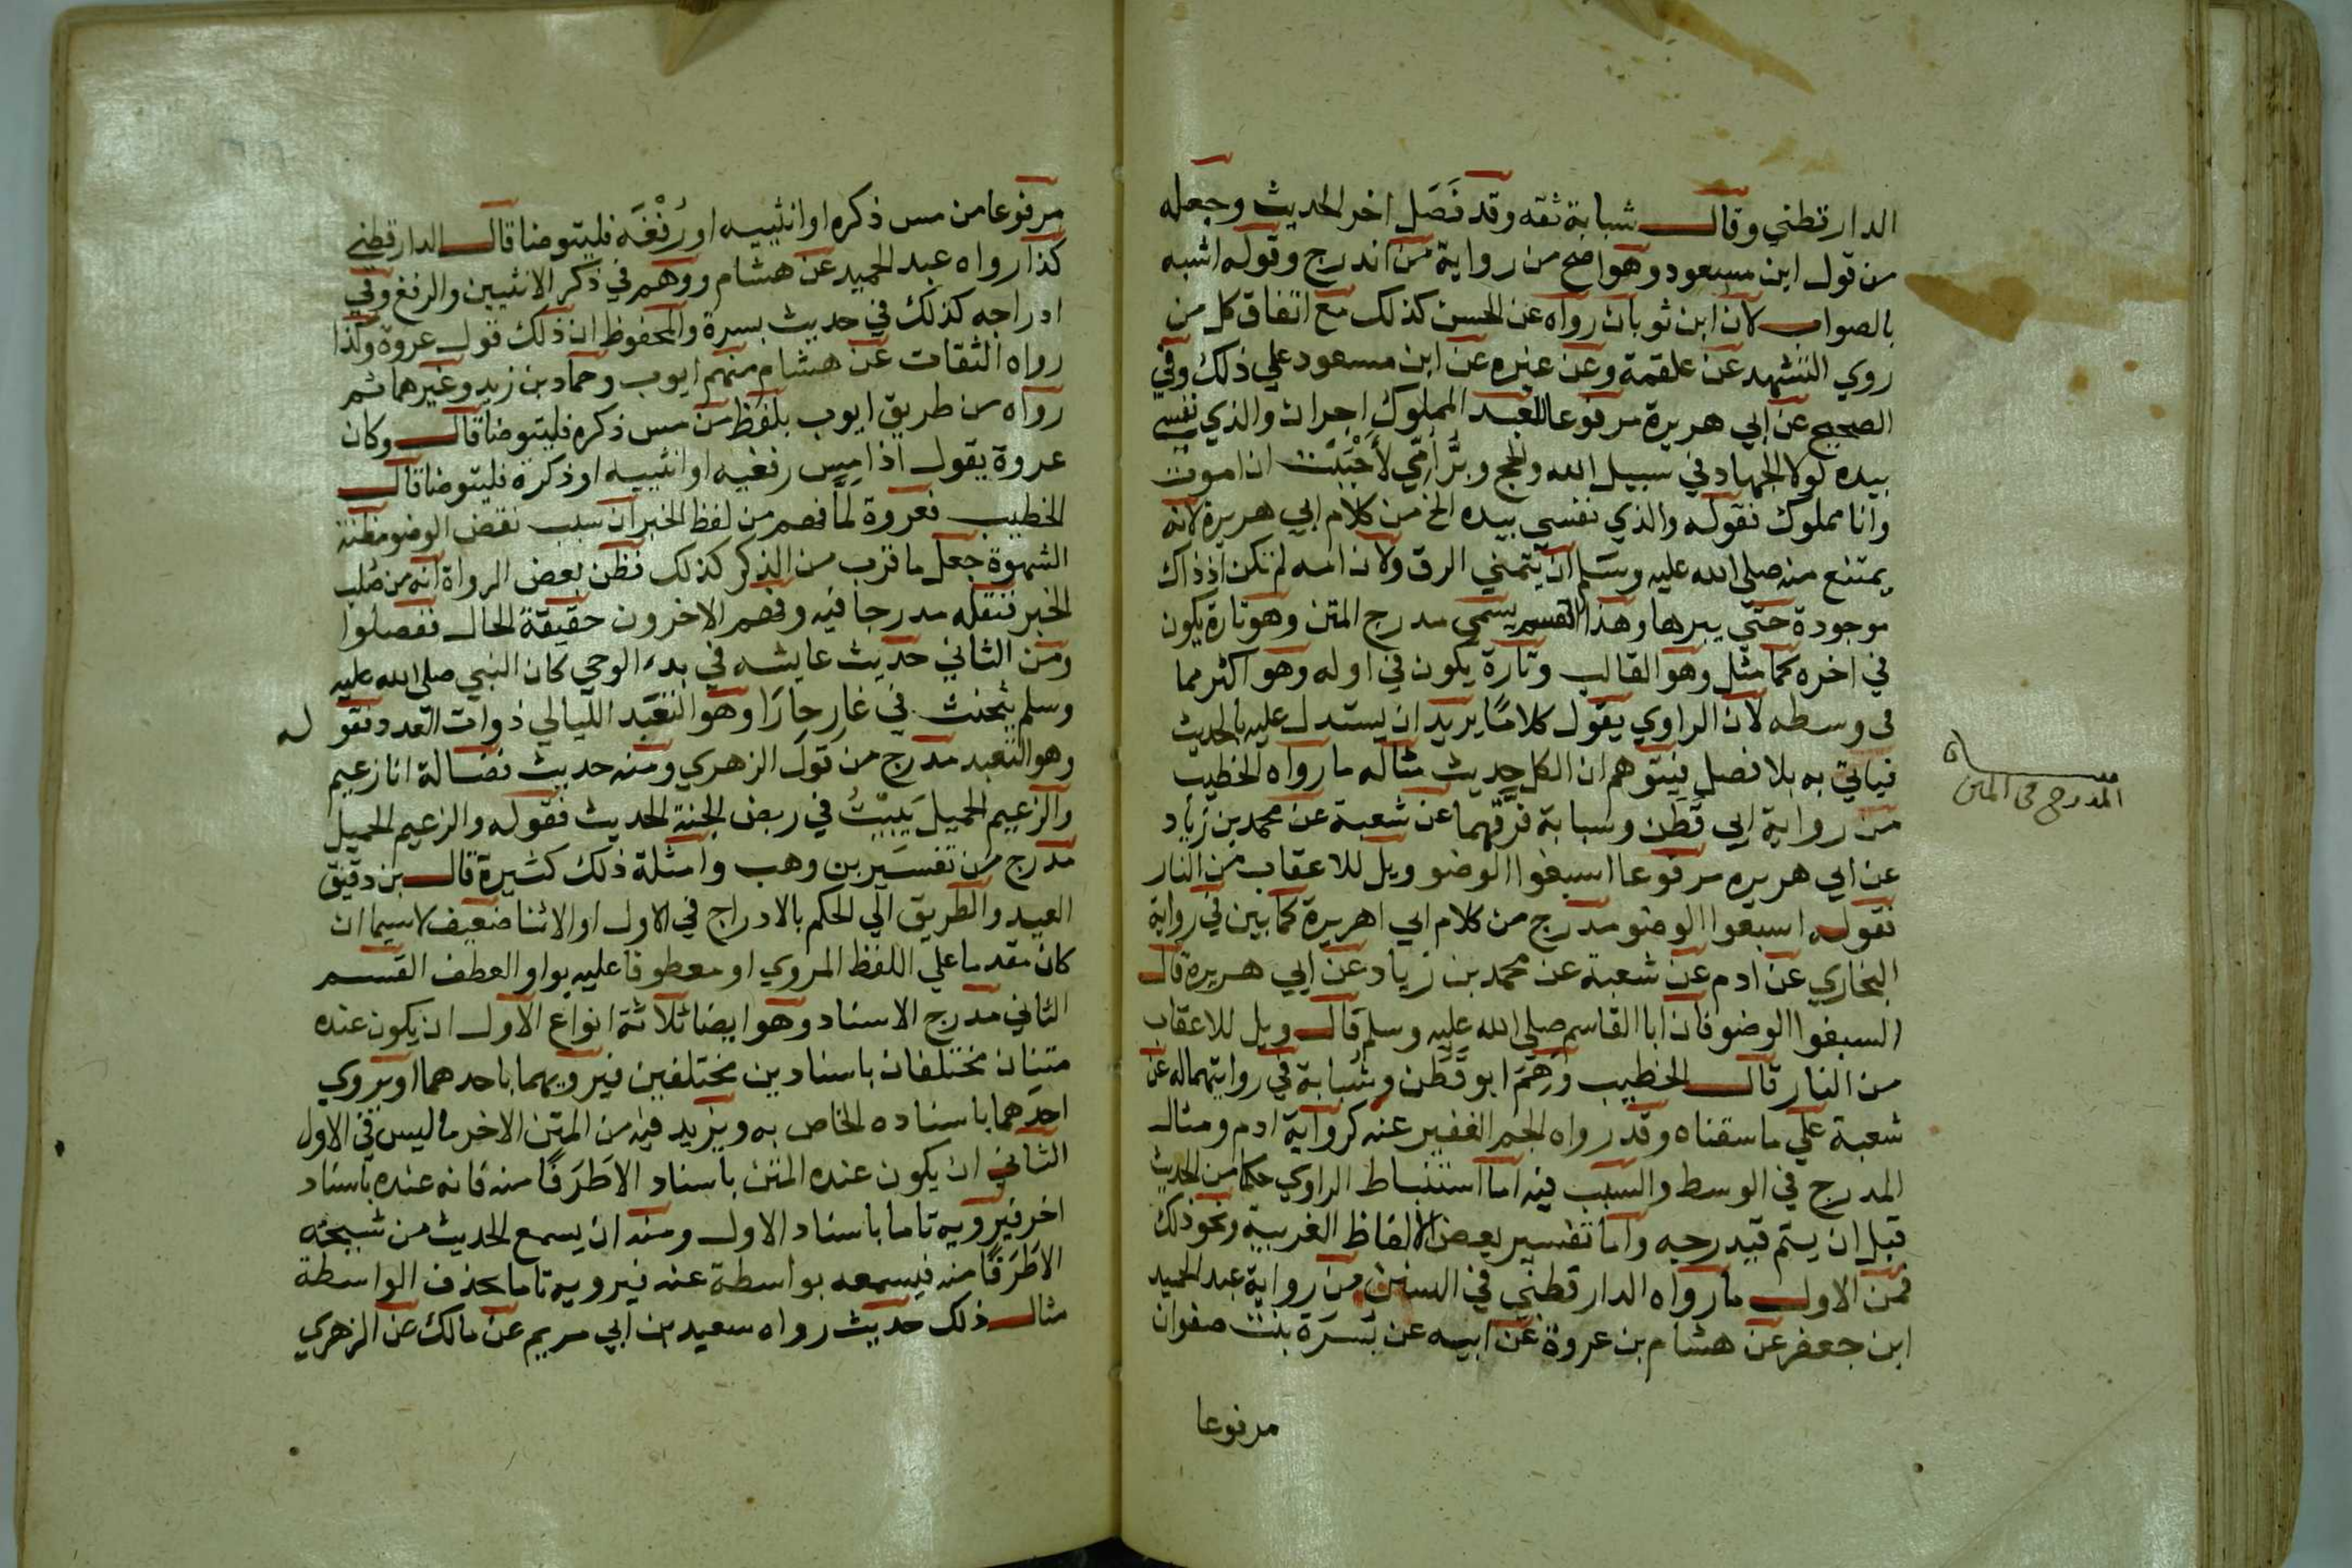 الدارقطني وقال شبابة ثقه وقد فَصَل اخر الحديث وجعله
من قول ابن مسعود وهو اصح من رواية من اندرج وقوله اشبه
بالصواب لان ابن ثوبان رواه عن الحسن كذلك مع اتفاق كل من
روي التشهد عن علقمة وعن غيره عن ابن مسعود علي ذلك وفي
الصحيح عن ابي هريرة مرفوعا للعبد المملوك اجران والذي نفسي
بيده لولا الجهاد في سبيل الله والحج وبرُّ امّي لأحْبَبْت ان اموت
وانا مملوك فقوله والذي نفسي بيده الخ من كلام ابي هريرة لانه
يمتنع منه صلى الله عليه وسلم ان يتمني الرق ولان امه لم تكن اذ ذاك
موجودة حتي يبرها وهذا القسم يسمى مدرج المتن وهو تارة يكون
في اخره كما مثل وهو الغالب وتارة يكون في اوله وهو اكثر مما
في وسطه لان الراوي يقول كلاما يريد ان يستدل عليه بالحديث
فياتي به بلا فصل فيتوهم ان الكل حديث مثاله ما رواه الخطيب
من رواية ابي قَطَن وشبابة فرَّقهما عن شعبة عن محمد بن زياد
عن ابي هريره مرفوعا اسبغوا الوضو ويل للاعقاب من النار
فقوله اسبغوا الوضو مدرج من كلام ابي اهريرة كما بين في رواية
البخاري عن ادم عن شعبة عن محمد بن زياد عن ابي هريرة قال
اسبغوا الوضو فان ابا القاسم صلى الله عليه وسلم قال ويل للاعقاب
من النار قال الخطيب وَهِمَ ابو قَطَن وشَبابة في روايتهما له عن
شعبة علي ما سقناه وقد رواه الجم الغفير عنه كرواية ادم ومثال
المدرج في الوسط والسبب فيه اما استنباط الراوي حكما من الحديث
قبل ان يتم فيدرجه واما تفسير بعض الالفاظ الغريبة ونحو ذلك
فمن الاول ما رواه الدارقطني في السنن من رواية عبد الحميد
ابن جعفر عن هشام بن عروة عن ابيه عن بُسْرَة بنت صفوان
مرفوعا
المدرج في المتن
مرفوعا من مس ذكره او انثييه او رُفْغَه فليتوضا قال الدارقطني
كذا رواه عبد الحميد عن هشام ووهم في ذكر الانثيين والرفغ وفي
ادراجه كذلك في حديث بسرة والمحفوظ ان ذلك قول عروة وكذا
رواه الثقات عن هشام منهم ايوب وحماد بن زيد وغيرهما ثم
رواه من طريق ايوب بلفظ من مس ذكره فليتوضا قال وكان
عروة يقول اذا مس رفغيه او انثييه او ذكره فليتوضا قال
الخطيب فعروة لمّا فهم من لفظ الخبر ان سبب نقض الوضو مظنة
الشهوة جعل ما قرب من الذكر كذلك فظن بعض الرواة انه من صُلب
الخبر فنقله مدرجا فيه وفهم الاخرون حقيقة الحال ففصلوا
ومن الثاني حديث عايشه في بدء الوحي كان النبي صلى الله عليه
وسلم يتحنث في غار حراء وهو التعبد الليالي ذوات العدد فقوله
وهو التعبد مدرج من قول الزهري ومنه حديث فضالة انا زعيم
والزعيم الحميل يَبيْتُ في ربض الجنة الحديث فقوله والزعيم الحميل
مدرج من تفسير بن وهب وامثلة ذلك كثيرة قال بن دقيق
العيد والطريق الي الحكم بالادراج في الاول او الاثنا ضعيف لا سيما ان
كان مقدما علي اللفظ المروي او معطوفا عليه بواو العطف القسم
الثاني مدرج الاسناد وهو ايضا ثلاثة انواع الاول ان يكون عنده
متنان مختلفان باسنادين مختلفين فيرويهما باحدهما او يروي
احدهما باسناده الخاص به ويزيد فيه من المتن الاخر ما ليس في الاول
الثاني ان يكون عنده المتن باسناد الا طَرَفًا منه فانه عنده باسناد
اخر فيرويه تاما باسناد الاول ومنه ان يسمع الحديث من شيخه
الا طَرَفًا منه فيسمعه بواسطة عنه فيرويه تاما بحذف الواسطة
مثال ذلك حديث رواه سعيد بن ابي مريم عن مالك عن الزهري